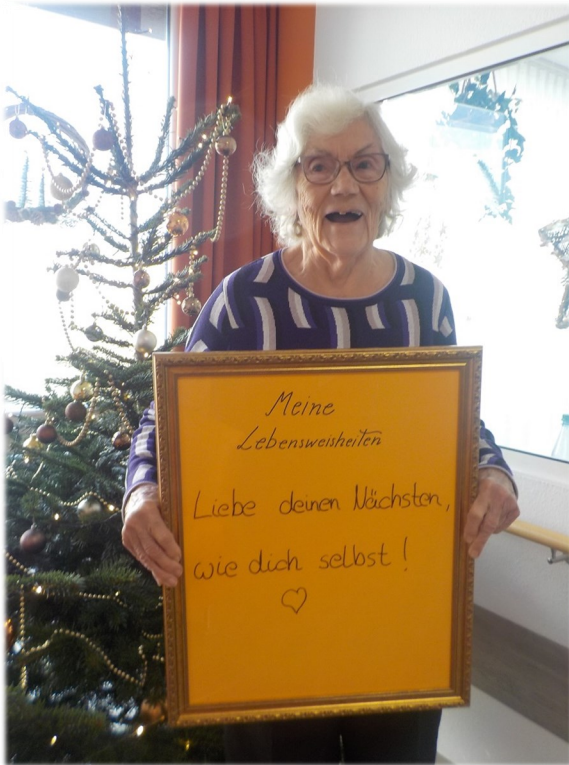 Meine
Lebensweisheiten
Liebe deinen Nächsten,
wie dich selbst!